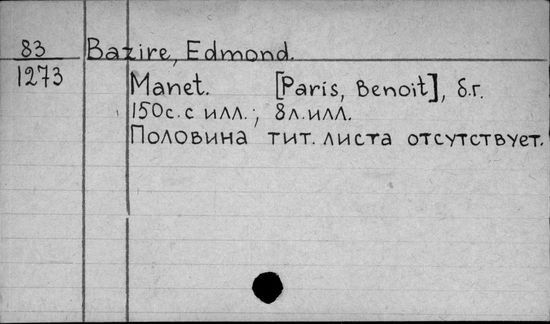 83 Bazire, Edmond.
1273
Manet. [Paris, Benoit], б.г.
150с. с илл.; 8л. илл.
Половина тит. листа отсутствует.